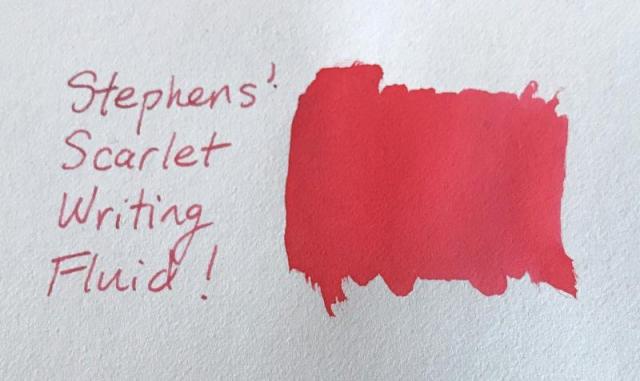 Stephens'
Scarlet
Writing
Fluid!